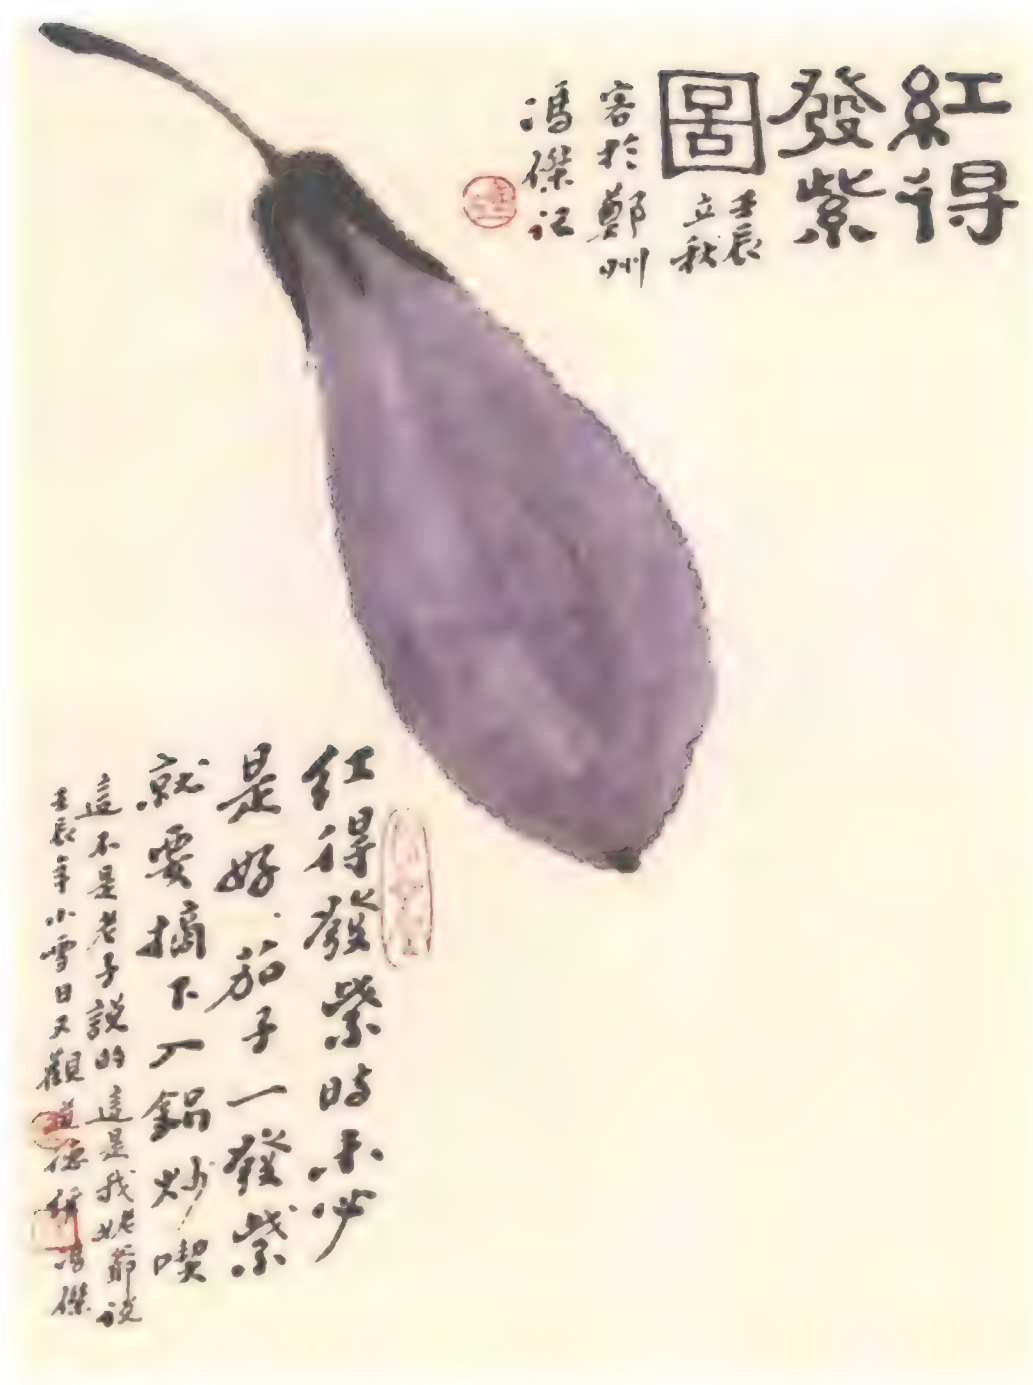 紅得
發紫
圖
壬辰
立秋
客於鄭州
馮傑記
紅得發紫時未必
是好茄子一發紫
就要摘下入鍋炒喫
這不是老子說的這是我姥爺說
壬辰年小雪日又觀道德經馮傑